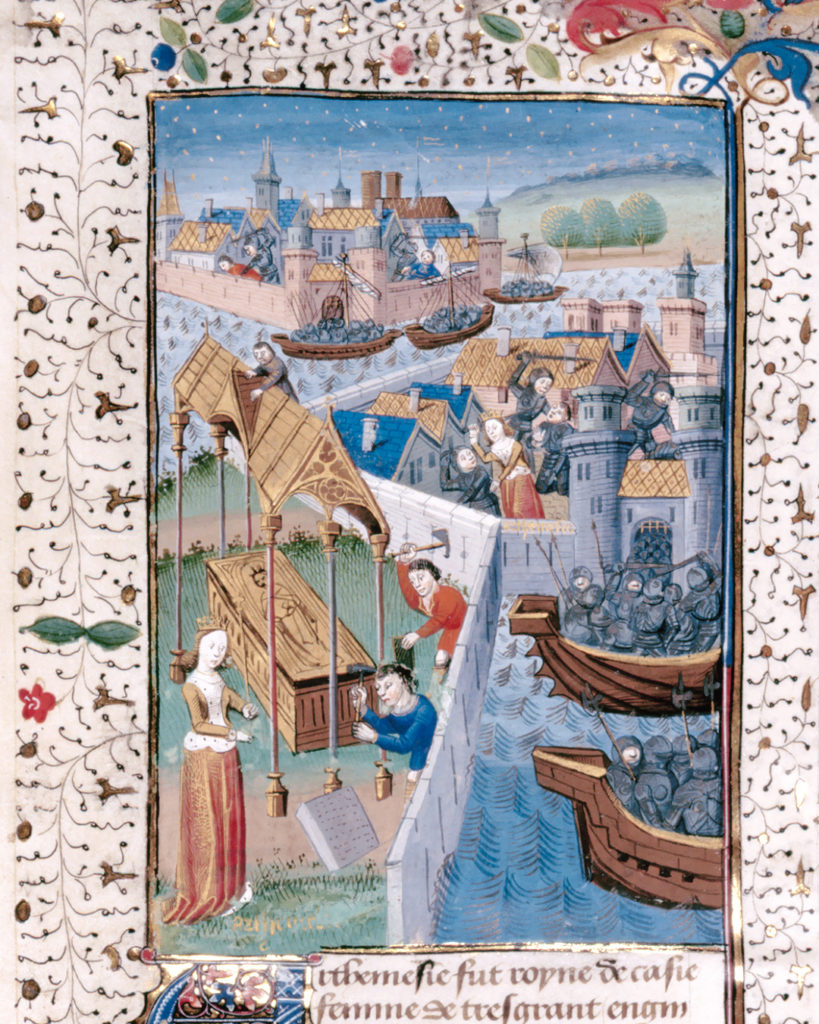 Arthemesie fut royne de casie
femme de tresgrant engin